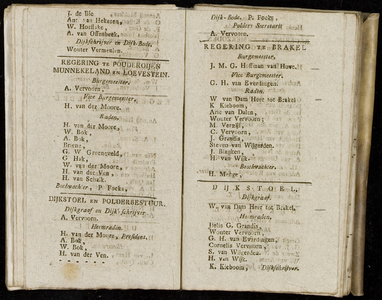 J. de Bie
Ant. van Hekeren,
W. Hoeflike,
A. van Offenbeek,
Dijkschrijver en Dijk-Bode.
Wouter Vermeulen.
REGERING te POUDEROIJEN
MUNNEKELAND en LOEVESTEIN.
Burgemeester.
A. Vervoorn,
Vice Burgemeester.
H. van der Moore.
Raden.
H. van der Moore,
W. Bok,
A. Bok,
G. W. Groeneveld,
G. Hak,
W. van der Moore,
H. van der Ven,
H. van Schaik.
Boekweekier, P. Foeks,
DIJKSTOEL en POLDERBESTUUR.
Dijkgraaf en Dijk-schrijver.
A. Vervoorn.
Heemraden.
H. van der Moore, President,
A. Bok,
W. Bok,
H. van der Ven.
Dijk-Bode. P. Foeks,
Polders Secretaris
A. Vervoorn.
REGERING te BRAKEL
Burgemeester.
J. M. G. H. van
Vice Burgemeester.
G. H. van Everdingen.
Raden.
W. van Dam Heer tot Brakel
K. Kieboom,
Arie van Dalen,
Wouter Vervoorn,
M. Vernooij,
C. Vervoorn,
J. Grandia,
Steven van Wijgerden.
J. Blanken,
H. van Wijk.
H.
DIJKSTOEL,
Dijkgraaf.
W. van Dam Heer tot Brakel,
Heemraden.
G. Grandia,
Wouter Vervoorn,
G. H. van Everdingen,
Cornelis Vervoorn,
S. van Wijgerden,
H. van Wijk.
K. Kieboom, Dijkschrijver.